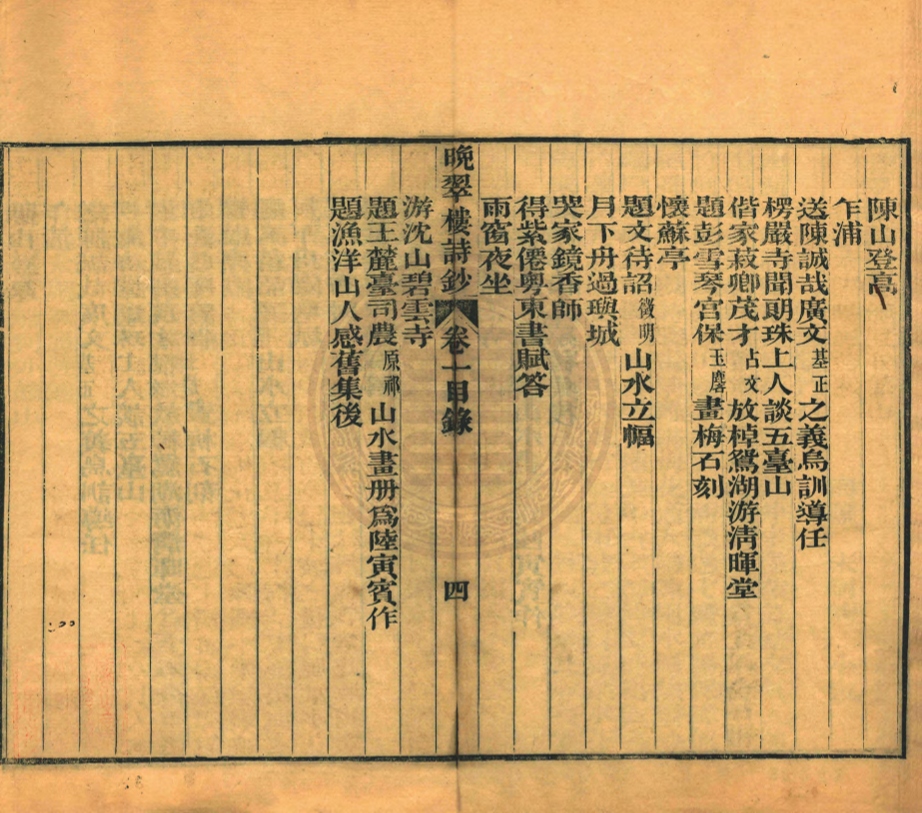 陳山登高
乍浦
送陳誠哉廣文基正之義烏訓導任
楞嚴寺聞朗珠上人談五臺山
偕家菽卿茂才占文放棹鴛湖游清暉堂
題彭雪琴宮保玉麐畫梅石刻
懷蘇亭
題文待詔徵明山水立幅
月下舟過璵城
哭家鏡香師
得紫僊粵東書賦答
雨窗夜坐
晩翠樓詩鈔 卷一目錄 四
游沈山碧雲寺
題王麓臺司農原祁山水畫册爲陸寅賓作
題漁洋山人感舊集後